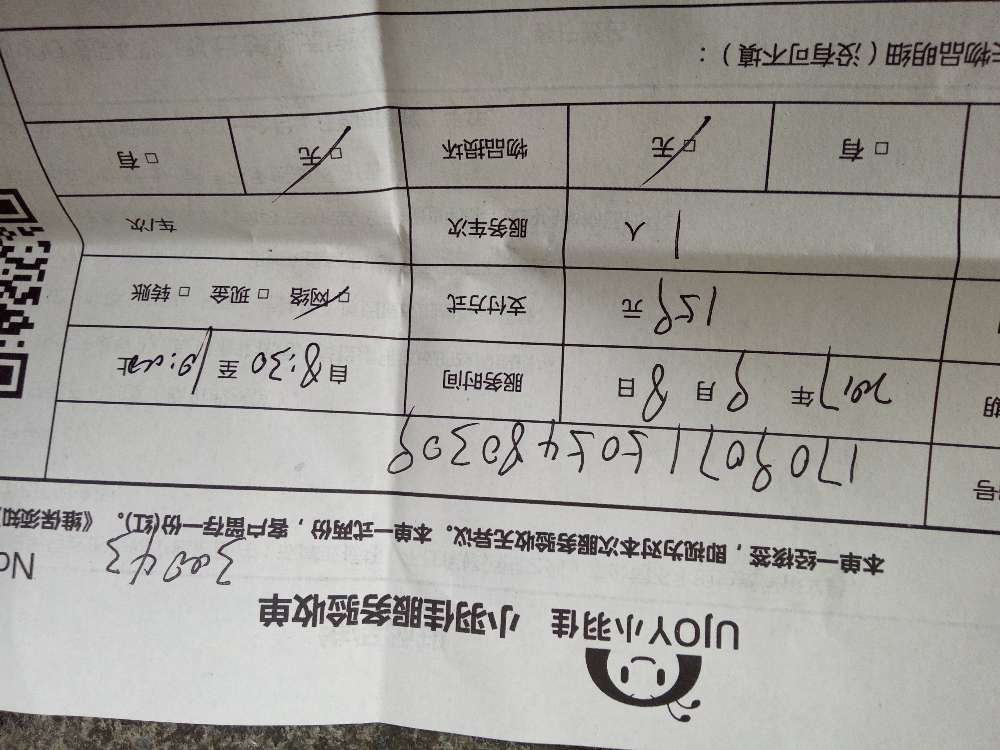 UJOY小羽佳 小羽佳服务验收单
No 30043
本单一经接签，即视为对本次服务验收无异议。本单一式两份，客户留存一份(红)。《维保须知
号 1708071505480308
期 2017年 8月 8日 服务时间 自8:30至 止
158元 支付方式 □网络 □现金 □转账
1人 服务车次 车/次
□有 □无 物品损坏 □无 □有
物品明细（没有可不填）：